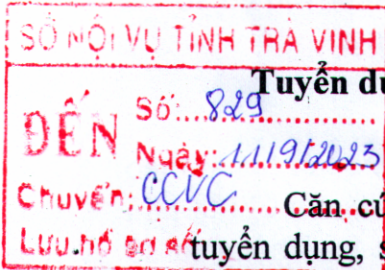 SỞ NỘI VỤ TỈNH TRÀ VINH
Tuyển dụ
ĐẾN
Số:...829...
Ngày:...11/9/2023
Chuyển: CCVC
Căn cứ
Lưu hồ sơ số
tuyển dụng, s